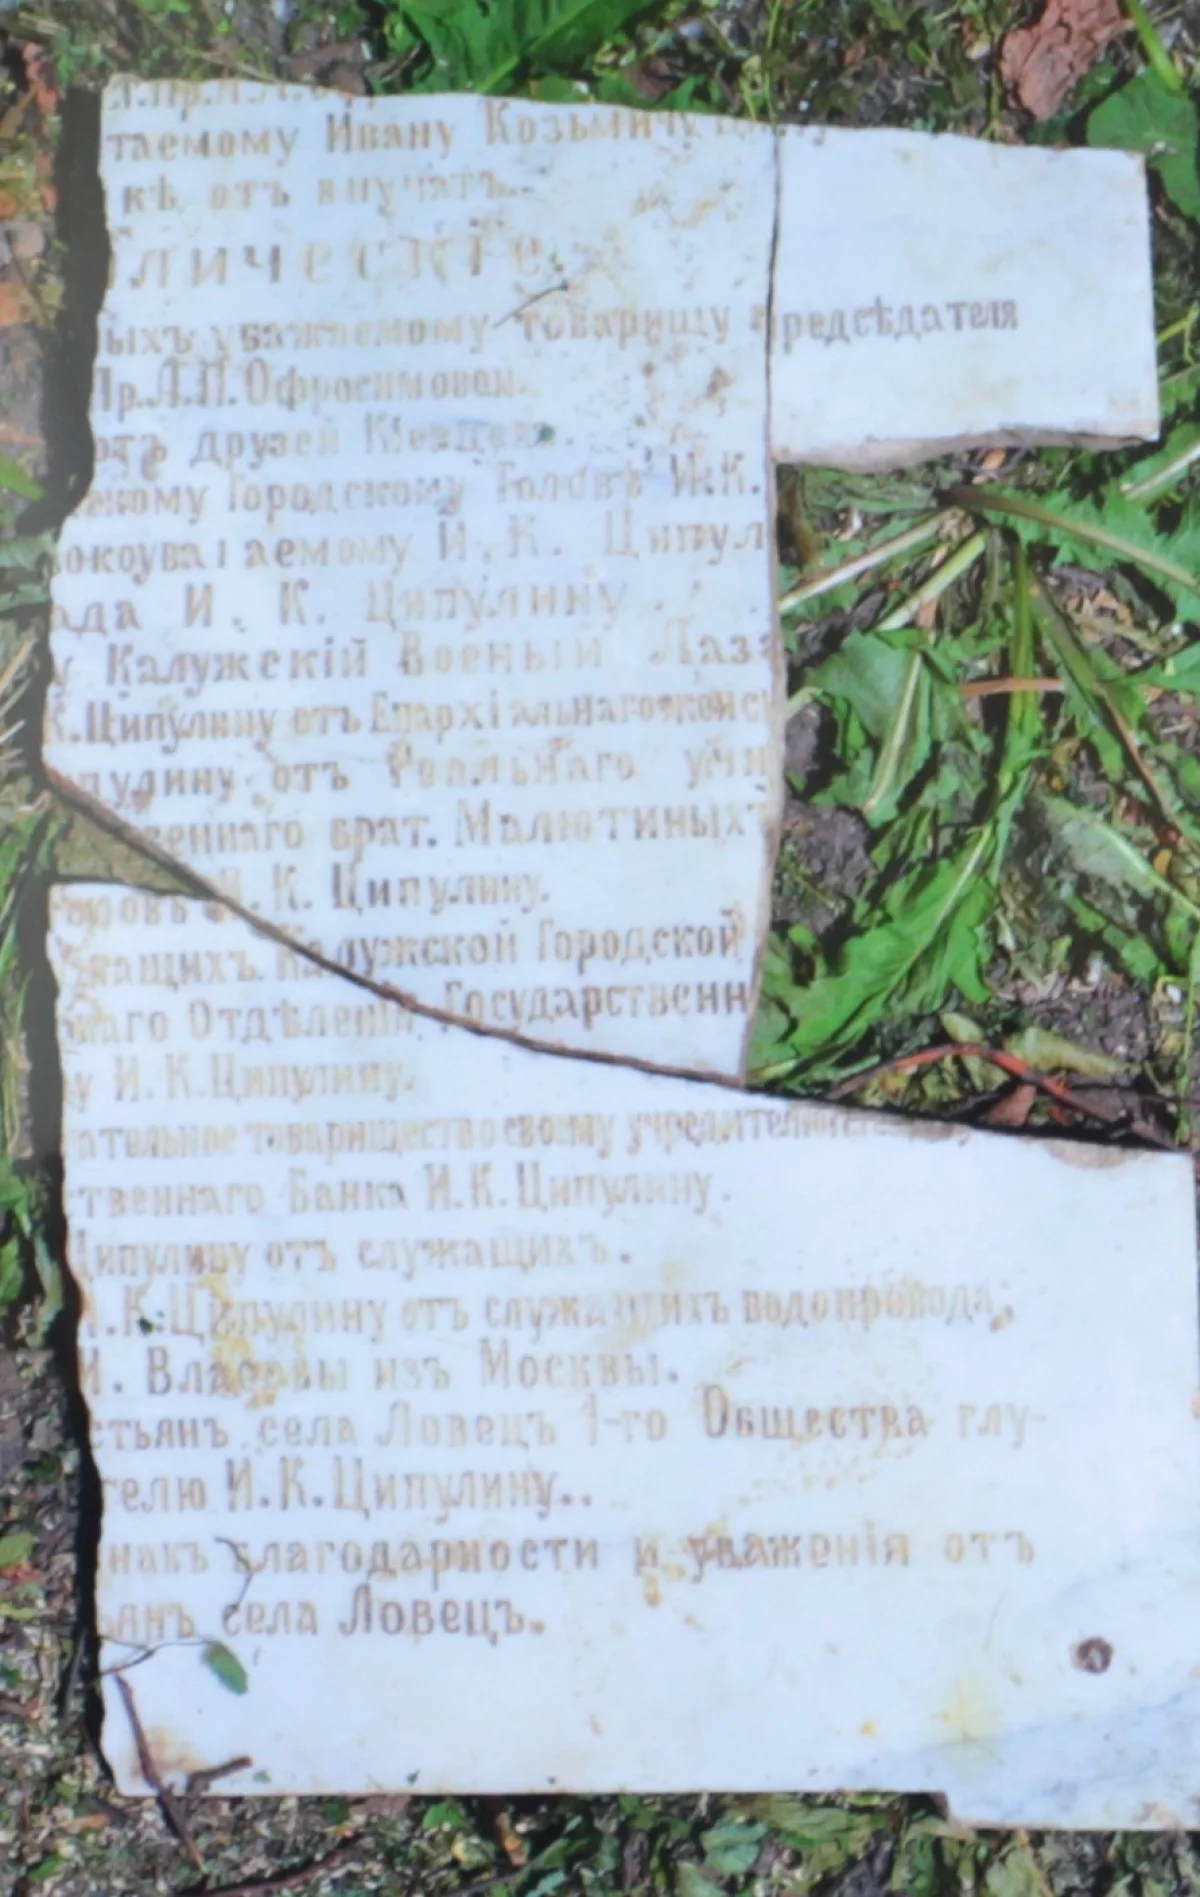 таемому Ивану Козьмичу
кѣ отъ внучатъ.
лическіе.
ыхъ уважаемому товарищу предсѣдателя
Пр.Л.П.Офросимовой.
отъ друзей Кіевцевъ.
скому Городскому Головѣ И.К.
окоуважаемому И. К. Ципул
ада И. К. Ципулину
у Калужскій Военый Лаза
К.Ципулину отъ Епархіальнаго женск
пулину отъ Реальнаго учи
венннаго врат. Малютиныхъ
И. К. Ципулину.
жащихъ Калужской Городской
наго Отдѣленія Государственн
у И.К.Ципулину.
ательное товарищество своему учредителю
ственнаго Банка И.К.Ципулину.
Ципулину отъ служащихъ.
И.К.Ципулину отъ служащихъ водопровода.
И. Власовы изъ Москвы.
стьянъ села Ловецъ 1-го Общества глу-
телю И.К.Ципулину..
накъ благодарности и уваженія отъ
янъ села Ловецъ.